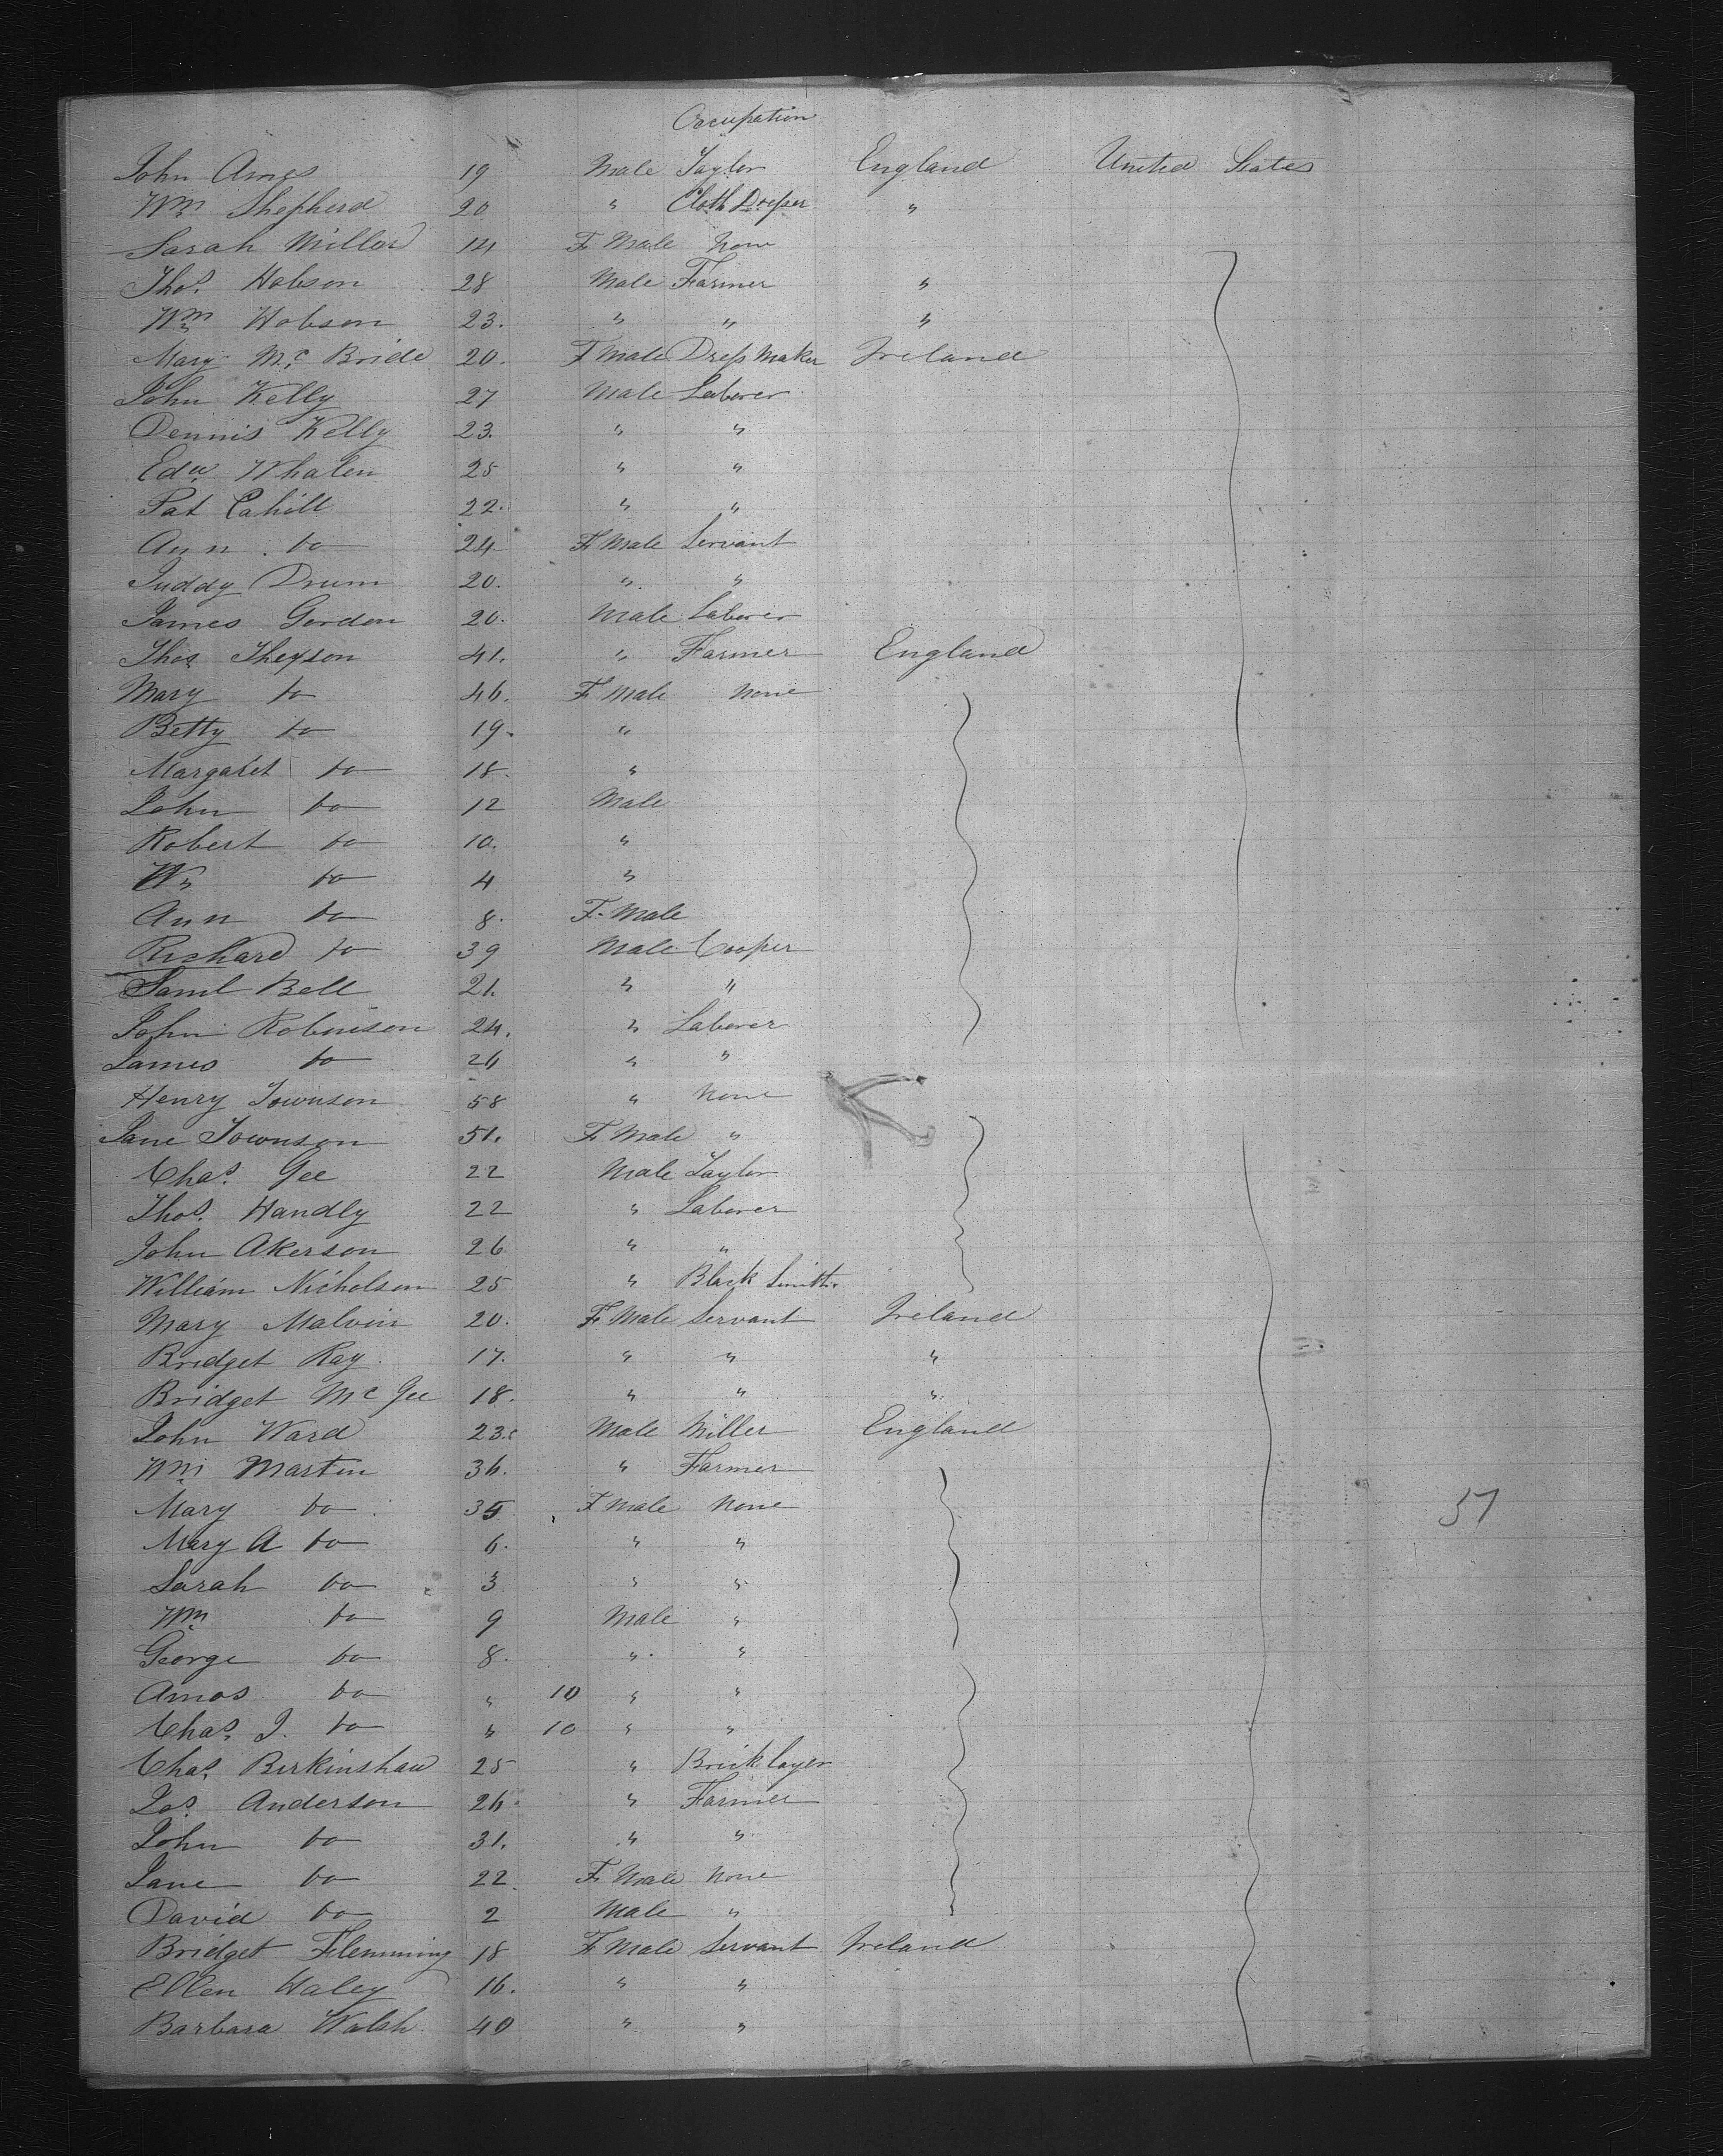 Occupation
John Ames 19 Male Taylor England United States
Wm Shepherd 20 " Cloth Dresser "
Sarah Miller 14 F. Male None
Thos. Hobson 28 Male Farmer "
Wm Hobson 23. " " "
Mary Mc Bride 20. F Male Dress Maker Ireland
John Kelly 27 Male Laborer
Dennis Kelly 23. " "
Edw. Whalen 25 " "
Pat Cahill 22. " "
Ann do 24 F. Male Servant
Juddy Drum 20. " "
James Gordon 20. Male Laborer
Thos 41. " Farmer England
Mary do 46. F Male None
Betty do 19. "
Margaret do 18. "
John do 12 Male
Robert do 10. "
Wm do 4 "
Ann do 8. F. Male
Richard do 39 Male Cooper
Saml Bell 21. " "
John Robinson 24. " Laborer
James do 26 " "
Henry Townson 58 " None
Jane Townson 51. F. Male "
Chas. Gee 22 Male Taylor
Thos. Handly 22 " Laborer
John Akerson 26 " "
William Nicholson 25 " Black Smith.
Mary Malvin 20. F. Male Servant Ireland
Bridget Ray. 17. " " "
Bridget Mc Gee 18. " " "
John Ward 23. Male Miller England
Wm Martin 36. " Farmer
Mary do 35 F Male None 57
Mary A do 6. " "
Sarah do 3 " "
Wm do 9 Male "
George do 8. " "
Amos do " 10 " "
Chas. J. do " 10 " "
Chas. Birkinshaw 25 " Brick layer
Jos. Anderson 26 " Farmer
John do 31. " "
Jane do 22. F. Male None
David do 2 Male "
Bridget Flemming 18 F. Male Servant Ireland
Ellen Haley 16. " "
Barbara Walsh. 40 " "